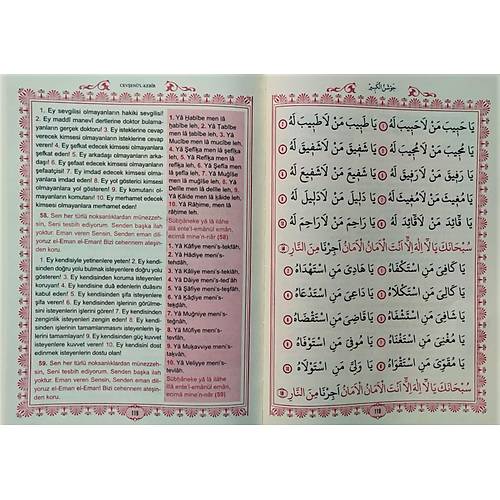 CEVŞENÜ'L-KEBİR
1. Ey sevgilisi olmayanların hakiki sevgilisi!
2. Ey maddî manevî dertlerine doktor bulama-
yanların gerçek doktoru! 3. Ey isteklerine cevap
verecek kimsesi olmayanların isteklerine cevap
veren! 4. Ey şefkat edecek kimsesi olmayanlara
şefkat eden! 5. Ey arkadaşı olmayanların arka-
daşı! 6. Ey şefaat edecek kimsesi olmayanların
şefaatçisi! 7. Ey imdad edecek kimsesi olma-
yanlara imdad eden! 8. Ey yol gösterici kimsesi
olmayanlara yol gösteren! 9. Ey komutanı ol-
mayanların komutanı! 10. Ey merhamet edecek
kimsesi olmayanlara merhamet eden!
58. Sen her türlü noksanlıklardan münezzeh-
sin, Seni tesbih ediyorum. Senden başka ilah
yoktur. Eman veren Sensin, Senden eman diliyoruz
el-Eman el-Eman! Bizi cehennem ateşin-
den koru.
1. Ey kendisiyle yetinenlere yeten! 2. Ey kendi-
sinden doğru yolu bulmak isteyenlere doğru yolu
gösteren! 3. Ey kendisinden koruma isteyenleri
koruyan! 4. Ey kendisine duâ edenlerin duâsını
kabul eden! 5. Ey kendisinden şifa isteyenlere
şifa veren! 6. Ey kendisinden işlerinin görülme-
sini isteyenlerin işlerini gören! 7. Ey kendisinden
zenginlik isteyenleri zengin eden! 8. Ey kendi-
sinden işlerinin tamamlanmasını isteyenlerin iş-
lerini tamamlayan! 9. Ey kendisinden güç kuvvet
isteyenlere kuvvet veren! 10. Ey kendisini dost
edinmek isteyenlerin dostu olan!
59. Sen her türlü noksanlıklardan münezzeh-
sin, Seni tesbih ediyorum. Senden başka ilah
yoktur. Eman veren Sensin, Senden eman dili-
yoruz el-Eman el-Eman! Bizi cehennem ateşin-
den koru.
1. Yâ Habîbe men lâ
habîbe leh, 2. Yâ Tabîbe
men lâ tabîbe leh, 3. Yâ
Mucîbe men lâ mucîbe leh,
4. Yâ Şefîka men lâ şefîka
leh, 5. Yâ Refîka men lâ
refîka leh, 6. Yâ Şefîa men
lâ şefîa leh, 7. Yâ
Muğîse men lâ muğîse leh, 8. Yâ
Delîle men lâ delîle leh, 9.
Yâ Kâide men lâ kâide leh,
10. Yâ Râhime, men lâ
râhime leh.
Sübhâneke yâ lâ ilâhe
illâ ente'l-emânül emân,
ecirnâ mine'n-nâr (58)
1. Yâ Kâfiye meni's-tekfâh,
2. Yâ Hâdiye meni's-
tehdâh,
5. Yâ Şâfiye meni's-teşfâh,
6. Yâ Kâdiye meni's-
7. Yâ Muğniye meni's-
tağnâh,
8. Yâ Mûfiye meni's-
tevfâh,
9. Yâ Mukavviye meni's-
takvâh,
10. Yâ Veliyye meni's-
tevlâh,
Sübhâneke yâ lâ ilâhe
illâ ente'l-emânül emân,
ecirnâ mine'n-nâr (59)
118
جَوْشَنُ الْكَبِيرِ
يَا حَبِيبَ مَنْ لَا حَبِيبَ لَهُ ۝ يَا طَبِيبَ مَنْ لَا طَبِيبَ لَهُ
يَا مُجِيبَ مَنْ لَا مُجِيبَ لَهُ ۝ يَا شَفِيقَ مَنْ لَا شَفِيقَ لَهُ
يَا رَفِيقَ مَنْ لَا رَفِيقَ لَهُ ۝ يَا شَفِيعَ مَنْ لَا شَفِيعَ لَهُ
يَا مُغِيثَ مَنْ لَا مُغِيثَ لَهُ ۝ يَا دَلِيلَ مَنْ لَا دَلِيلَ لَهُ
يَا قَائِدَ مَنْ لَا قَائِدَ لَهُ ۝ يَا رَاحِمَ مَنْ لَا رَاحِمَ لَهُ
سُبْحَانَكَ يَا لَا إِلٰهَ إِلَّا أَنْتَ الْأَمَانُ الْأَمَانُ أَجِرْنَا مِنَ النَّارِ
يَا كَافِيَ مَنِ اسْتَكْفَاهُ ۝ يَا هَادِيَ مَنِ اسْتَهْدَاهُ
يَا كَالِئَ مَنِ اسْتَكْلَاهُ ۝ يَا دَاعِيَ مَنِ اسْتَدْعَاهُ
يَا شَافِيَ مَنِ اسْتَشْفَاهُ ۝ يَا قَاضِيَ مَنِ اسْتَقْضَاهُ
يَا مُغْنِيَ مَنِ اسْتَغْنَاهُ ۝ يَا مُوفِيَ مَنِ اسْتَوْفَاهُ
يَا مُقَوِّيَ مَنِ اسْتَقْوَاهُ ۝ يَا وَلِيَّ مَنِ اسْتَوْلَاهُ
سُبْحَانَكَ يَا لَا إِلٰهَ إِلَّا أَنْتَ الْأَمَانُ الْأَمَانُ أَجِرْنَا مِنَ النَّارِ
118